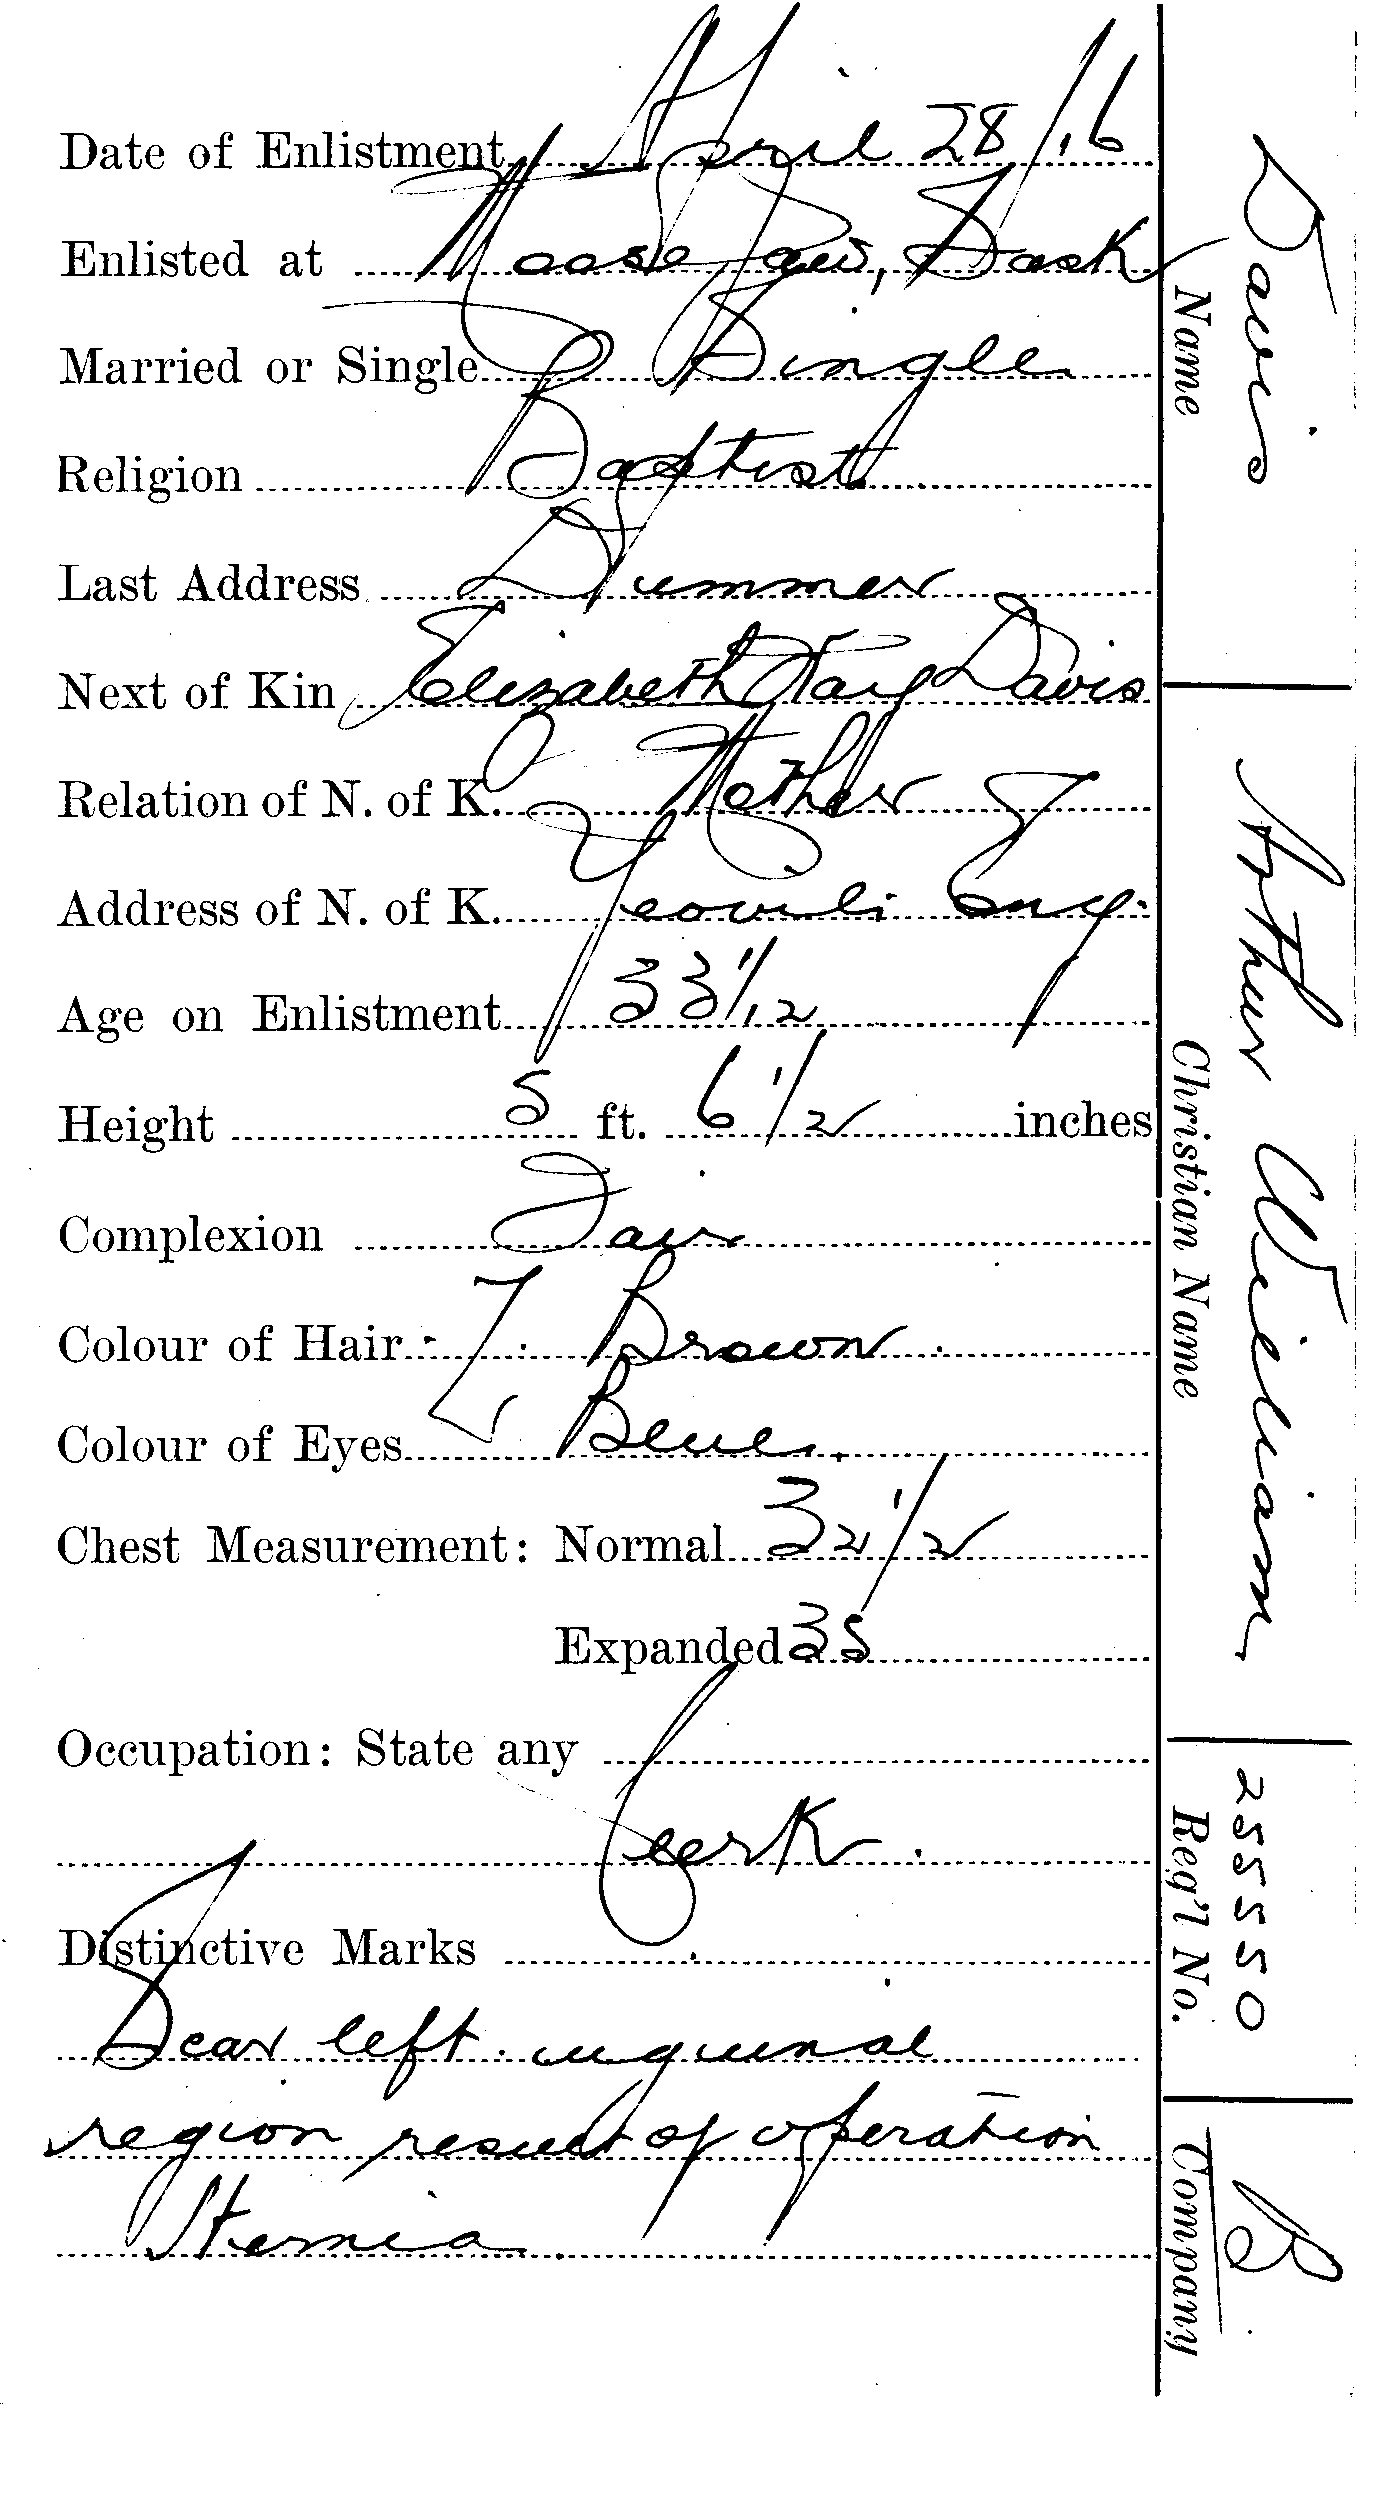 Date of Enlistment April 28/16
Enlisted at Moose Jaw, Sask
Married or Single Single
Religion Baptist
Last Address Drummer
Next of Kin Elizabeth Davis
Relation of N. of K. Mother
Address of N. of K. Eng.
Age on Enlistment 33 1/12
Height 5 ft. 6 1/2 inches
Complexion Fair
Colour of Hair Brown
Colour of Eyes Blue
Chest Measurement: Normal 32 1/2
Expanded 35
Occupation: State any
Clerk.
Distinctive Marks
Scar left inguinal
region result of operation
Hernia
Davis
Name
Arthur William
Christian Name
255550
Reg'l No.
B
Company